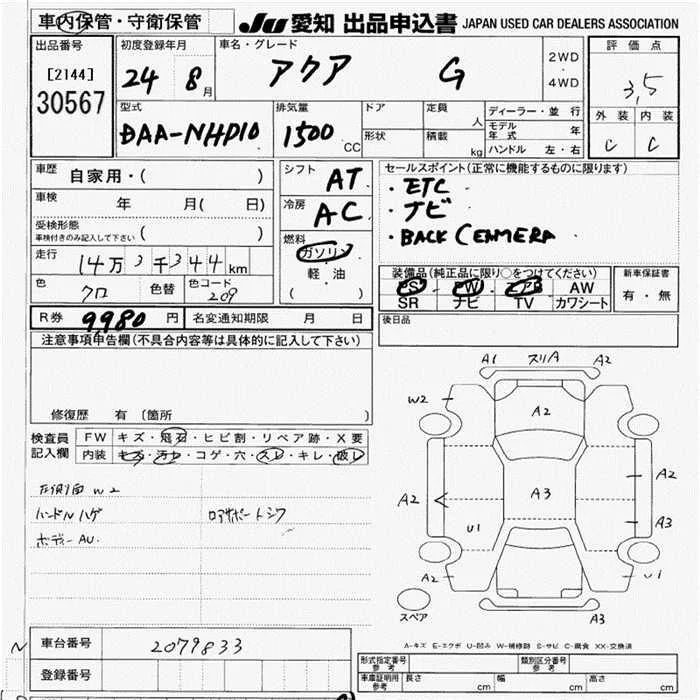 車内保管・守衛保管 JU 愛知 出品申込書 JAPAN USED CAR DEALERS ASSOCIATION
出品番号 初度登録年月 車名・グレード 評価点
[2144] 24 8月 アクア G 2WD・4WD 3,5
30567
型式 排気量 ドア 定員 人 ディーラー・並行 外装 内装
DAA-NHP10 1500 CC 形状 積載 kg モデル年式 年 C C
ハンドル 左・右
車歴 自家用・( ) シフト AT セールスポイント(正常に機能するものに限ります)
車検 年 月( 日) 冷房 AC ・ETC
受検形態 ・ナビ
車検付きのみ記入して下さい ( ) 燃料 ・BACK CAMERA
走行 14万3千344km ガソリン
軽・油
( )
色 クロ 色替 色コード 209 装備品(純正品に限り○をつけてください) 新車保証書
PS PW AB AW 有・無
SR ナビ TV カワシート
R券 9,980円 名変通知期限 月 日 後日品
注意事項申告欄(不具合内容等は具体的に記入して下さい)
修復歴 有 [箇所 ]
検査員記入欄 FW キズ・飛石・ヒビ割・リペア跡・X要
内装 キズ・汚れ・コゲ・穴・スレ・キレ・破レ
W2
ハンドルハゲ ロアサポートシワ
ボディーAU.
A1 スリA A2
W2
A2
A2 A3 A2
A3
U1
A2 U1
スペア A3
A-キズ E-エクボ U-凹み W-補修跡 S-サビ C-腐食 XX-交換済
車台番号 2079833
登録番号
形式指定番号 参考 類別区分番号 参考
車庫証明用 参考 長さ cm 幅 cm 高さ cm